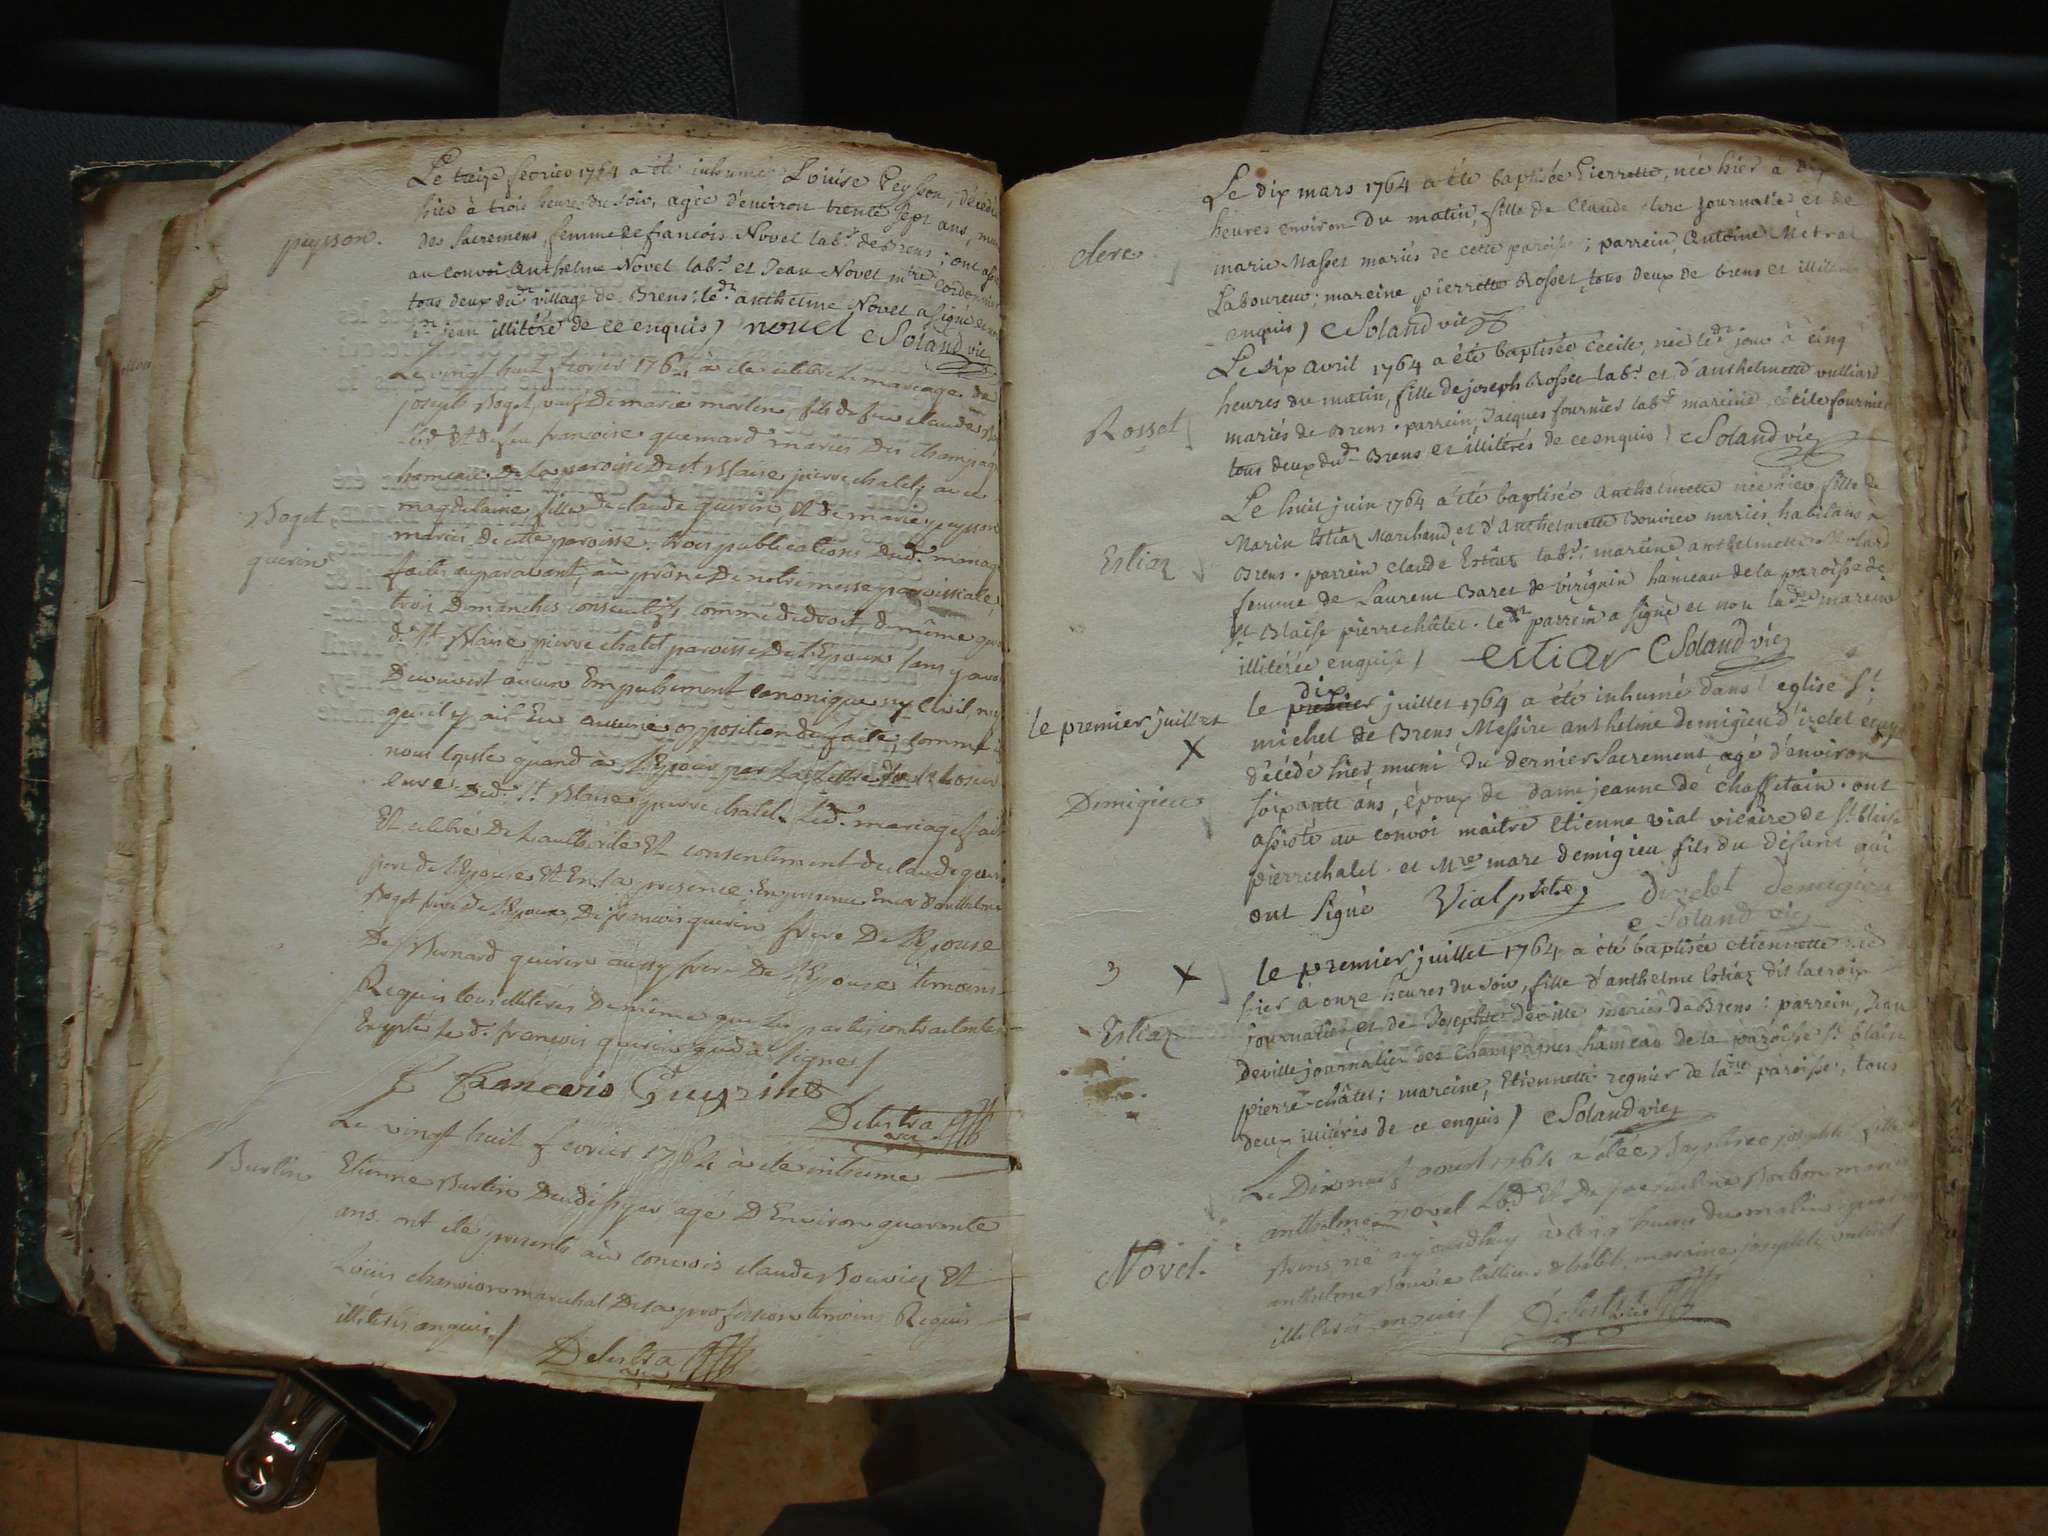 peysson.
Le treize fevrier 1764 a été inhumée Louise Peysson, décédée
hier à trois heures du soir, agée d'environ trente sept ans, munie
des sacremens, femme de francois Novel labr. de Brens; ont assisté
au convoi Anthelme Novel labr. et Jean Novel mtre. cordonnier
tous deux dudt. village de Brens; ledt. anthelme Novel a signé et non
jean illitéré de ce enquis) novel Soland vic
Boget
guerin
Le vingt huit fevrier 1764 à ete célébré le mariage de
joseph Boget, veuf De marie morlin, fils de feu claude
et De feu francoise quemard mariés Des Champagne
hameau De la paroisse De st Blaise pierre chatel; avec
magdelaine fille de claude guerin, et de marie peysson
mariés De cette paroisse. trois publications dud. mariage
faites auparavant, au prône De notre messe paroissiale,
trois Dimanches consecutifs comme de droit, De même qu'a
St. Blaise pierre chatel paroisse De L'Epoux sans y avoir
Decouvert aucun Empechement canonique ny Civil, ny
qu'il y ait Eu aucune opposition de faite; comme il
nous conste quand à L'Epoux par La Lettre
Ded. St. Blaise pierre chatel. Led. mariage fait
Et celebré De L'authorité Et consentement de claude guerin
pere de L'Epouse Et En sa presence, En presence Encor d'anthelme
Boget frere de L'Epoux, De francois guerin frere De L'Epouse
De Bernard guerin aussy frere De L'Epouse temoins
Requis tous illiterés De même que les parties contractantes
Excepté le d. francois guerin qui a signé /
f francois Guerin
Delestra
Burlin
Le vingt huit fevrier 1764 à été inhumé
Etienne Burlin agé D'Environ quarente
ans. ont ete presents au convois claude Bouvier Et
Loüis chanvion marechal De sa profession temoins Requis
illiterés enquis /
Delestra
clerc
Le dix mars 1764 a été baptisée Pierrette, née hier à dix
heures environ du matin, fille de Claude clerc journalier et de
marie Masset mariés de cette paroisse; parrein, Antoine Métral
Laboureur; mareine, pierrette Rosset, tous deux de brens et illitérés
enquis) Soland vic
Rosset
Le dix avril 1764 a été baptisée Cecile, née ledt. jour à cinq
heures du matin, fille de joseph Rosset labr. et d'anthelmette vulliard
mariés de Brens. parrein, Jacques fournier labr. mareine, Cecile fournier
tous deux dudt. Brens et illitérés de ce enquis) Soland vic
Estiaz
Le huit juin 1764 a été baptisée Anthelmette née hier fille de
Marin Estiaz Marchand, et d'Anthelmette Bouvier mariés habitans a
Brens. parrein claude Estiaz labr; mareine anthelmette Molard
femme de Laurent Baret de virignin hameau de la paroisse de
St Blaise pierrechâtel. ledt. parrein a signé et non ladte. mareine
illitérée enquise) estiar Soland vic
le premier juillet
X
Demigieu
le premier dix juillet 1764 a été inhumé dans l'eglise St.
michel de Brens Messire anthelme demigieu d'izelet
décédé hier, muni du dernier sacrement, agé d'environ
soixante ans, époux de dame jeanne de chaffetain. ont
assisté au convoi maitre Etienne vial vicaire de St. Blaise
pierrechatel. et Mre marc demigieu fils du défunt qui
ont signé Vial ptre dizelet demigieu
Soland vic
3 X
Estiaz
le premier juillet 1764 a été baptisée etiennette née
hier à onze heures du soir, fille d'anthelme Estiaz dit lacroix
journalier, et de Josephte Deville mariés de Brens: parrein, Jean
Deville journalier des Champagnes hameau de la paroisse St. blaise
pierre-châtel; mareine, Etiennette regnier de ladte paroisse, tous
deux illitérés de ce enquis) Soland vic
Novel.
Le Dixneuf aoust 1764 a été Baptisée josephte fille
anthelme novel Lbd. Et De jacqueline Borbon mariés
Brens né aujourdhuy à cinq heures du matin; parrein
anthelme Bouvier tallieur d'habit, mareine josephte
illiterés enquis / Delestra